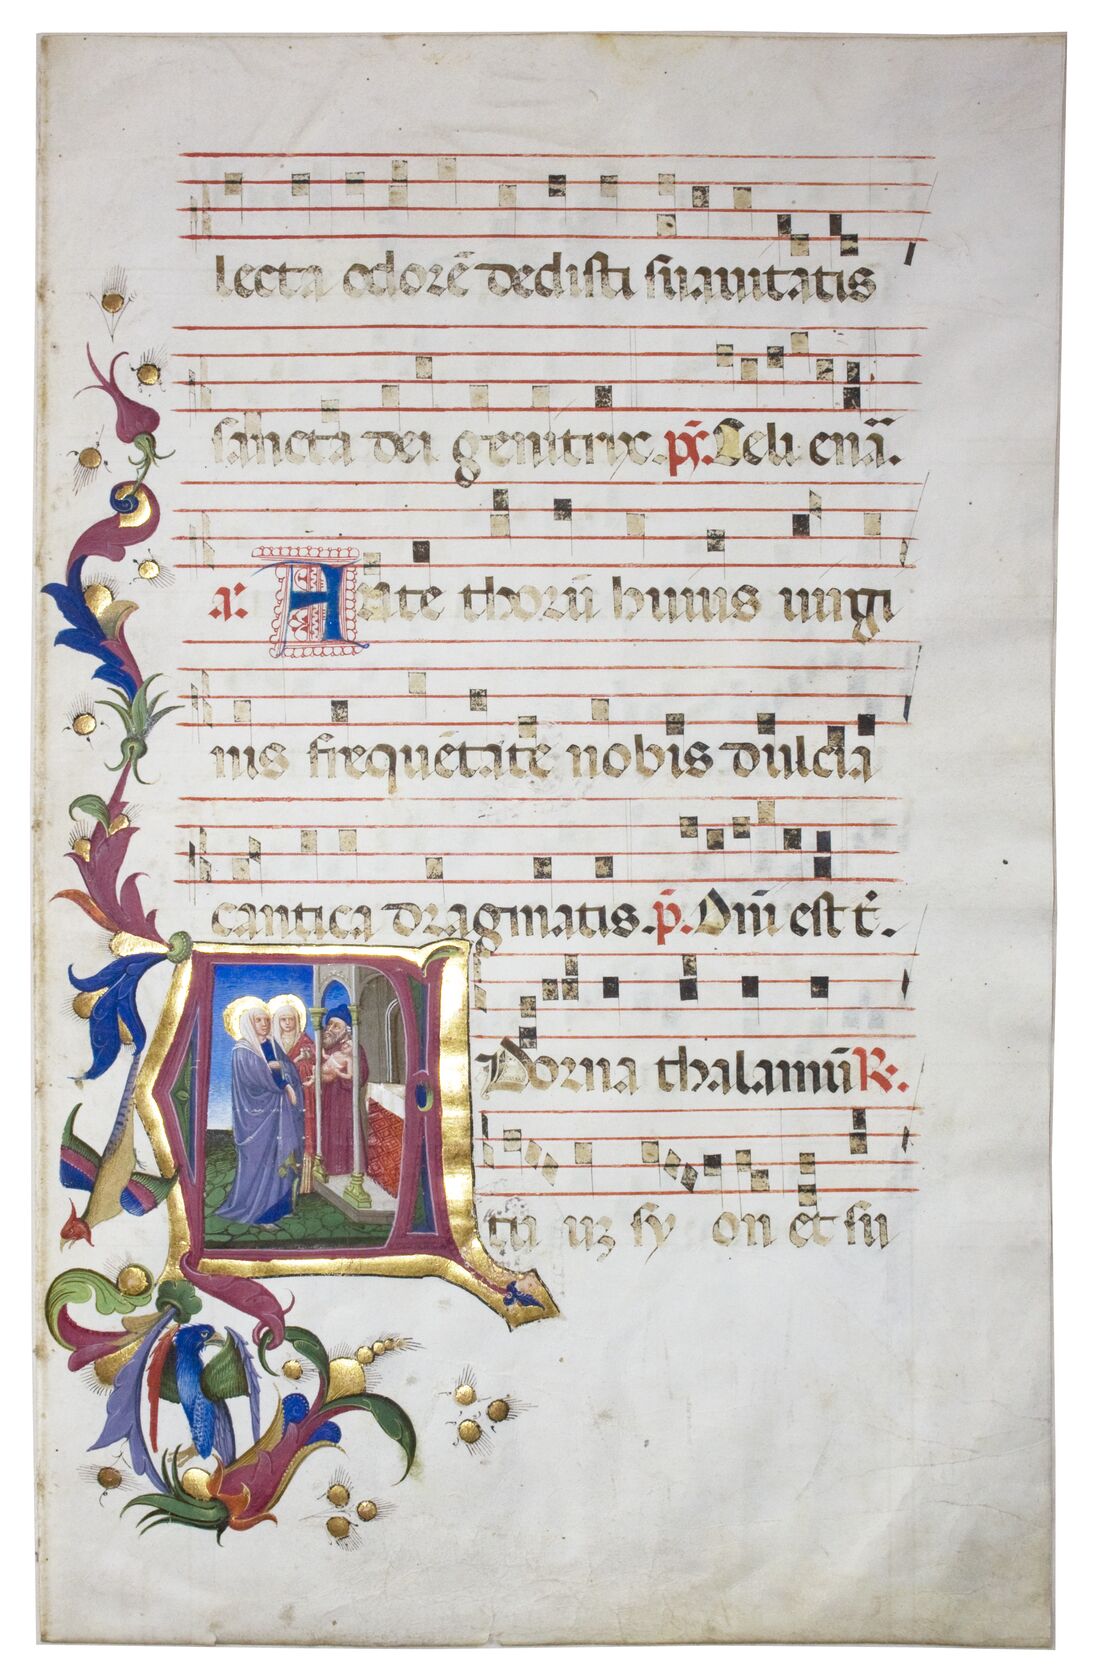 lecta odorē dedisti suauitatis
sancta dei genitrix. p̄s. Celi enā.
a. Ante thorū huius uirgi
nis frequētate nobis dulcia
cantica dragmatis. p̄. Dn̄i est t̄.
Adorna thalamū R.
tu uʒ sy on et su